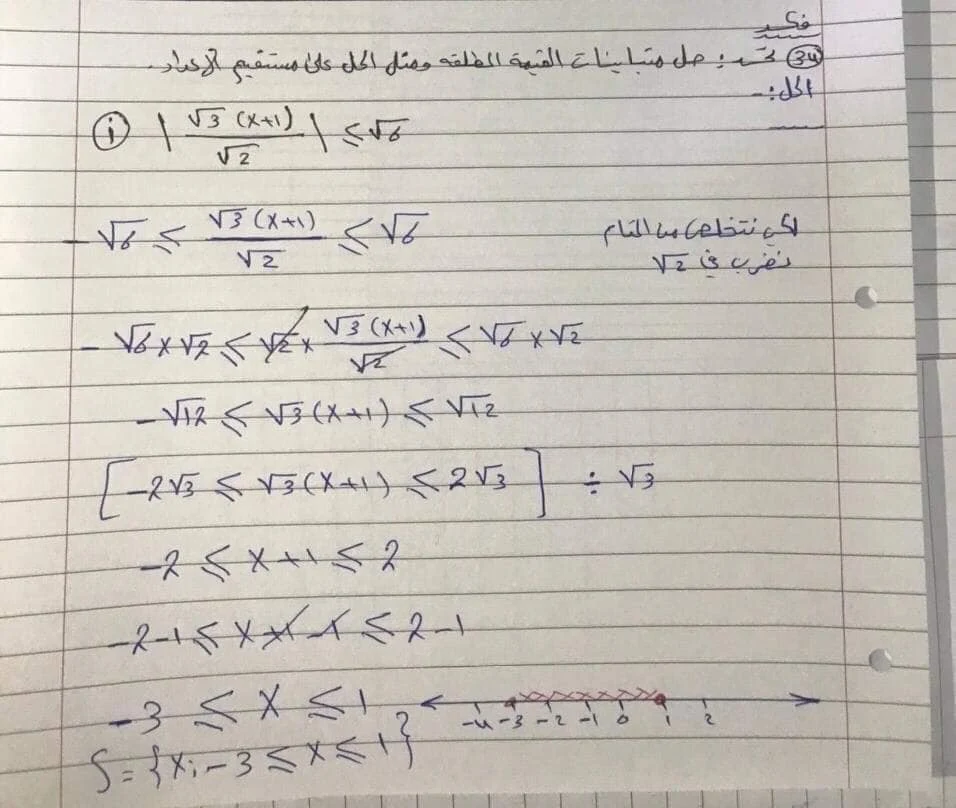 فكر
(34) تحدٍ: حل متباينات القيمة المطلقة ومثل الحل على مستقيم الأعداد.
الحل:-
(i) | √3 (x+1) / √2 | ⩽ √6
-√6 ⩽ √3 (x+1) / √2 ⩽ √6 لكي نتخلص من المقام
نضرب في √2
-√6 × √2 ⩽ √2 × √3 (x+1) / √2 ⩽ √6 × √2
-√12 ⩽ √3 (x+1) ⩽ √12
[-2√3 ⩽ √3 (x+1) ⩽ 2√3] ÷ √3
-2 ⩽ x+1 ⩽ 2
-2-1 ⩽ x+1-1 ⩽ 2-1
-3 ⩽ x ⩽ 1
-4 -3 -2 -1 0 1 2
S = {x; -3 ⩽ x ⩽ 1}